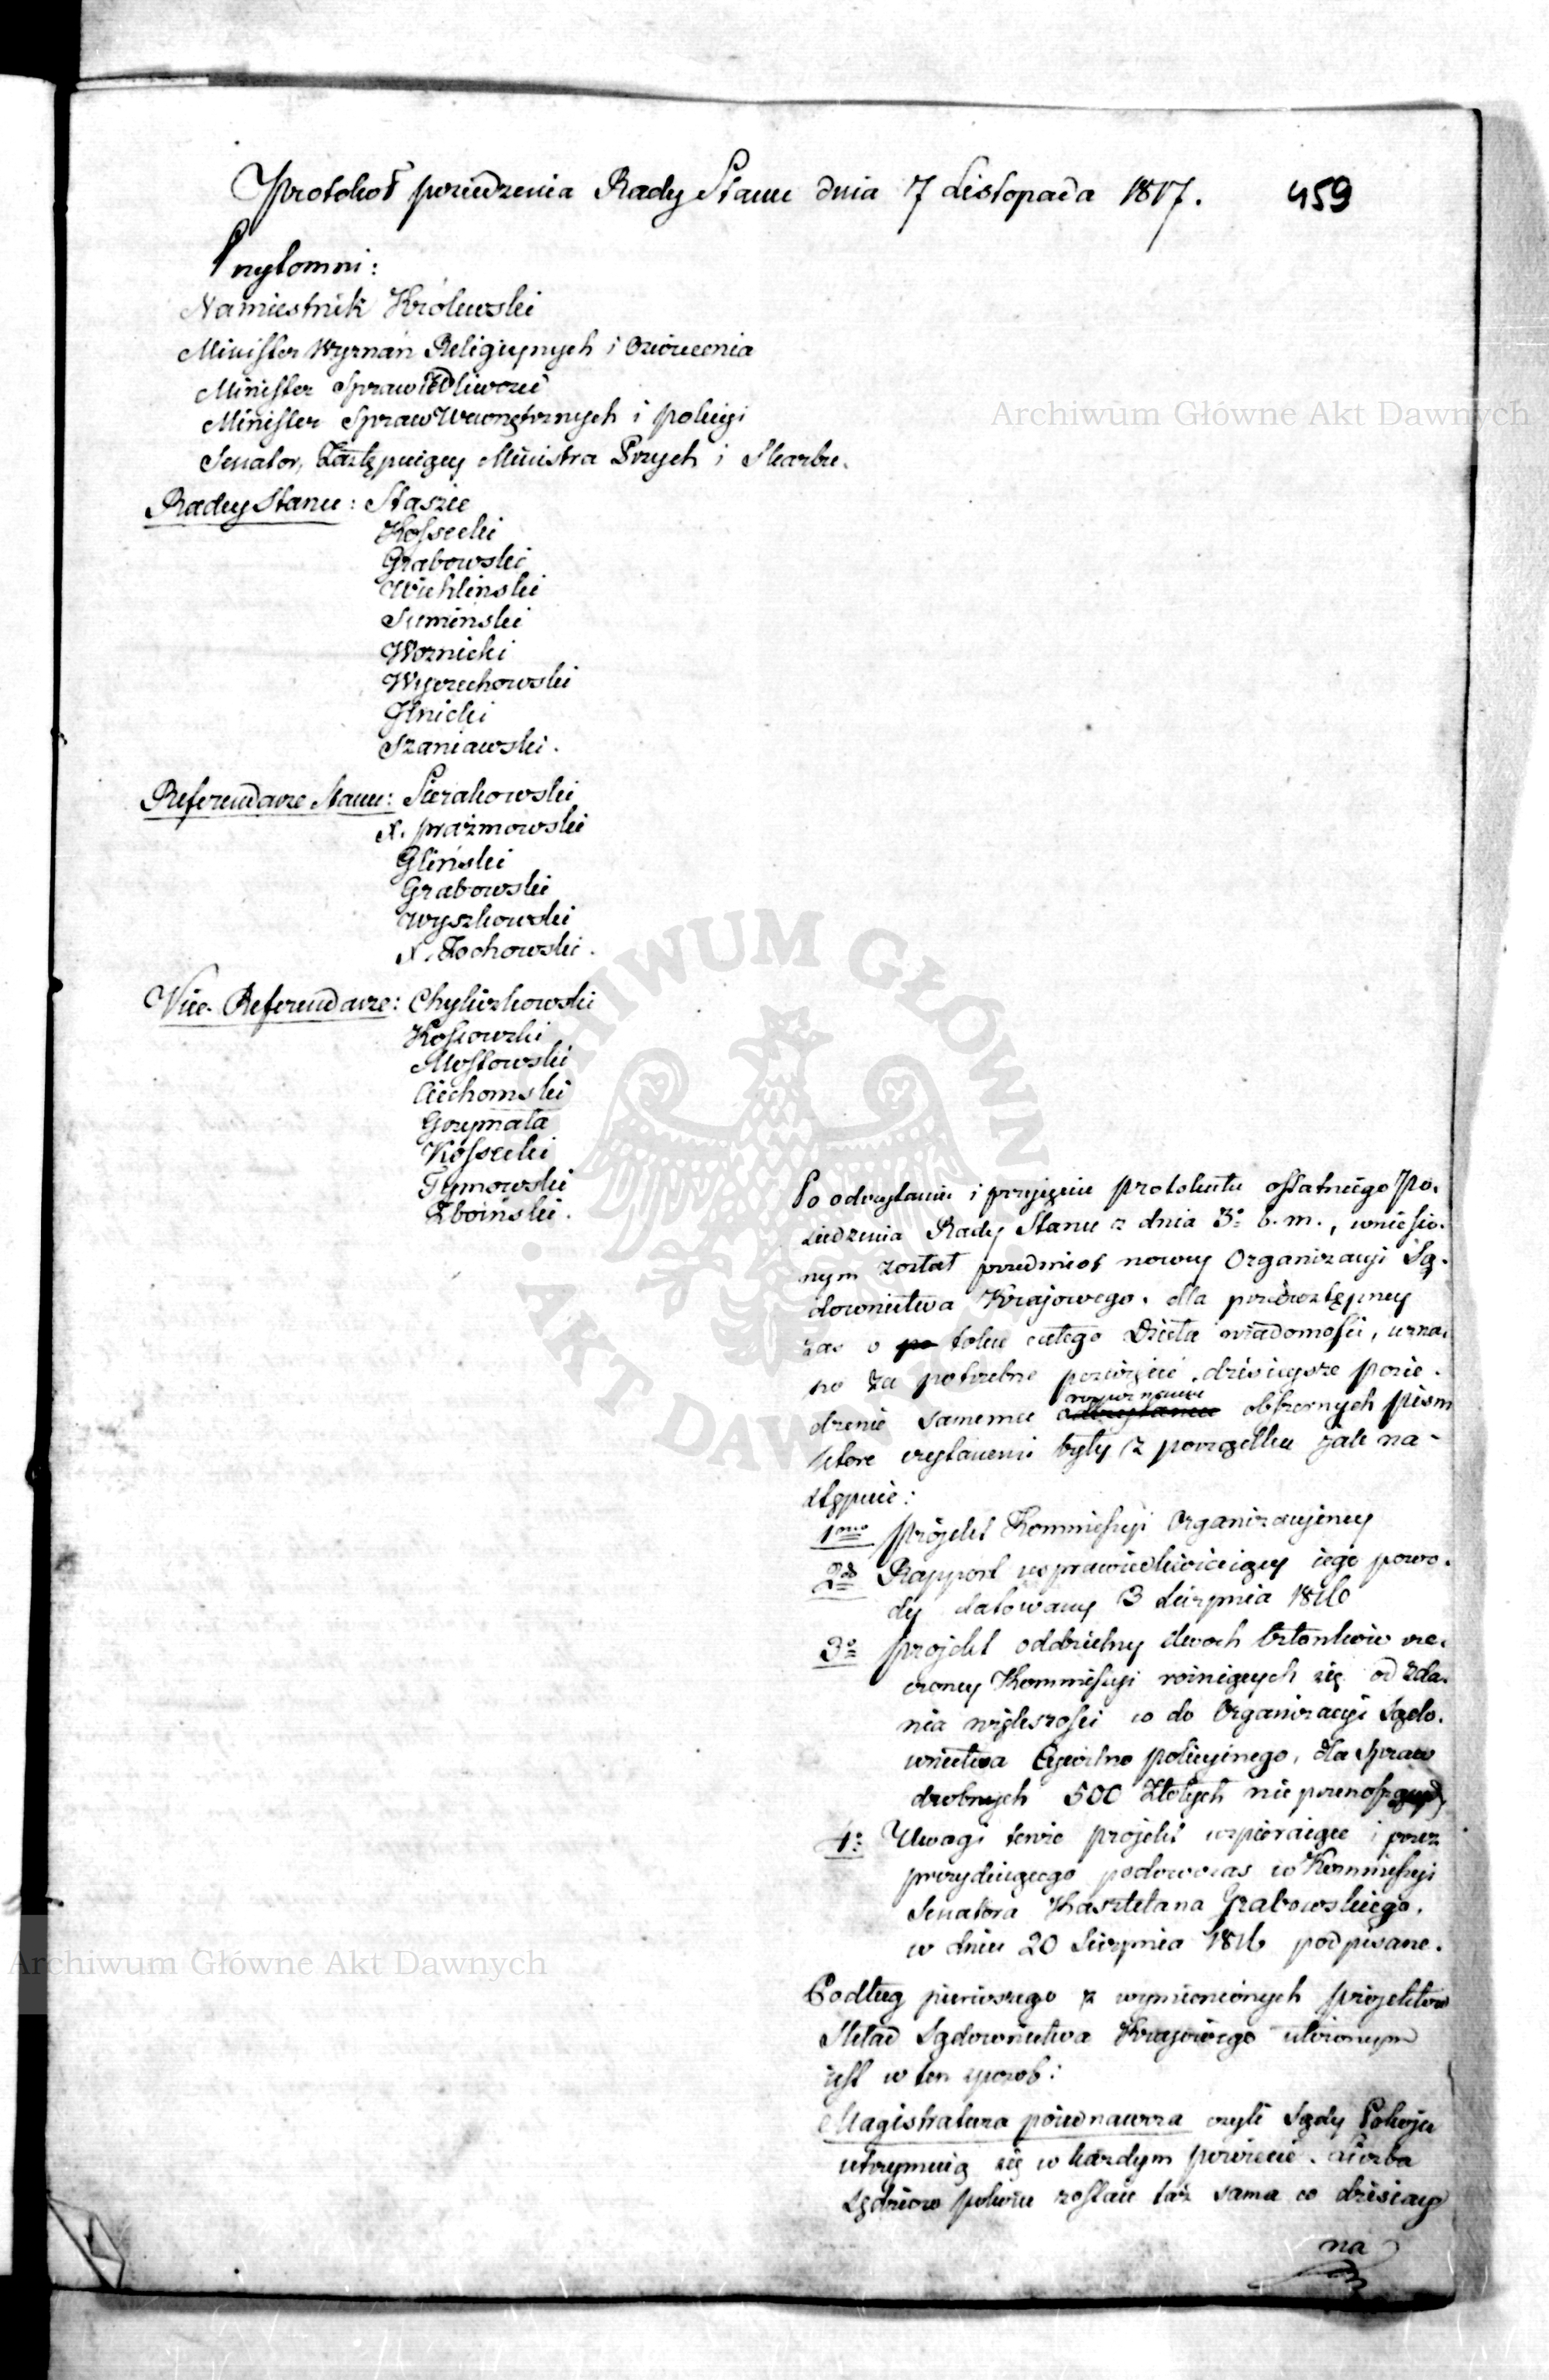 Protokoł posiedzenia Rady Stanu dnia 7 Listopada 1817.
459
Przytomni:
Namiestnik Królewski
Minister Wyznań Religijnych i Oświecenia
Minister Sprawiedliwości
Minister Spraw Wewnętrznych i Policyi
Senator, Zastępuiący Ministra Przych i Skarbu.
Radcy Stanu: Staszic
Kossecki
Grabowski
Wichliński
Sumiński
Woznicki
Wyczechowski
Glnicki
Szaniawski.
Referendarze Stanu: Sierakowski
X. Prażmowski
Gliński
Grabowski
Wyszkowski
X. Żochowski.
Vice-Referendarze: Chyliczkowski
Kossowski
Mostowski
Ciechomski
Grzymała
Kossecki
Tymowski
Zboiński.
Po odczytaniu i przyjęciu protokułu ostatniego Po-
siedzenia Rady Stanu z dnia 3º b. m., wniesio-
nym został przedmiot nowey Organizacyi Są-
downictwa Krajowego. dla powzięcia
zaś o po toku całego Dzieła wiadomości, uzna-
no za potrzebne poświęcić dzisieysze posie-
dzenie samemu rozpoznaniu obszernych pism
które czytanemi były z porządku jak na-
stępuie:
1mo Projekt Kommissyi Organizacyiney
2do Rapport usprawiedliwiaiący iego powo-
dy datowany 3 Sierpnia 1816
3º Projekt oddzielny dwóch Członków rze-
czoney Kommissyi rożniących się od zda-
nia większości co do Organizacyi Sądo-
wnictwa Cywilno policyinego, dla Spraw
drobnych 500 Złotych nie przenoszących
4º Uwagi tenże projekt wspieraiące i przez
prezyduiącego podówczas w Kommissyi
Senatora Kasztelana Grabowskiego,
w dniu 20 Sierpnia 1816 podpisane.
Podług pierwszego z wymienionych projektów
Skład Sądownictwa Krajowego ułożonym
jest w ten sposób:
Magistratura pojednawcza czyli Sądy Pokoju
utrzymuią się w każdym powiecie. Liczba
Sędziów pokoiu zostaie taż sama co dzisiay
na
Archiwum Główne Akt Dawnych
Archiwum Główne Akt Dawnych
ARCHIWUM GŁÓWNE · AKT DAWNYCH ·